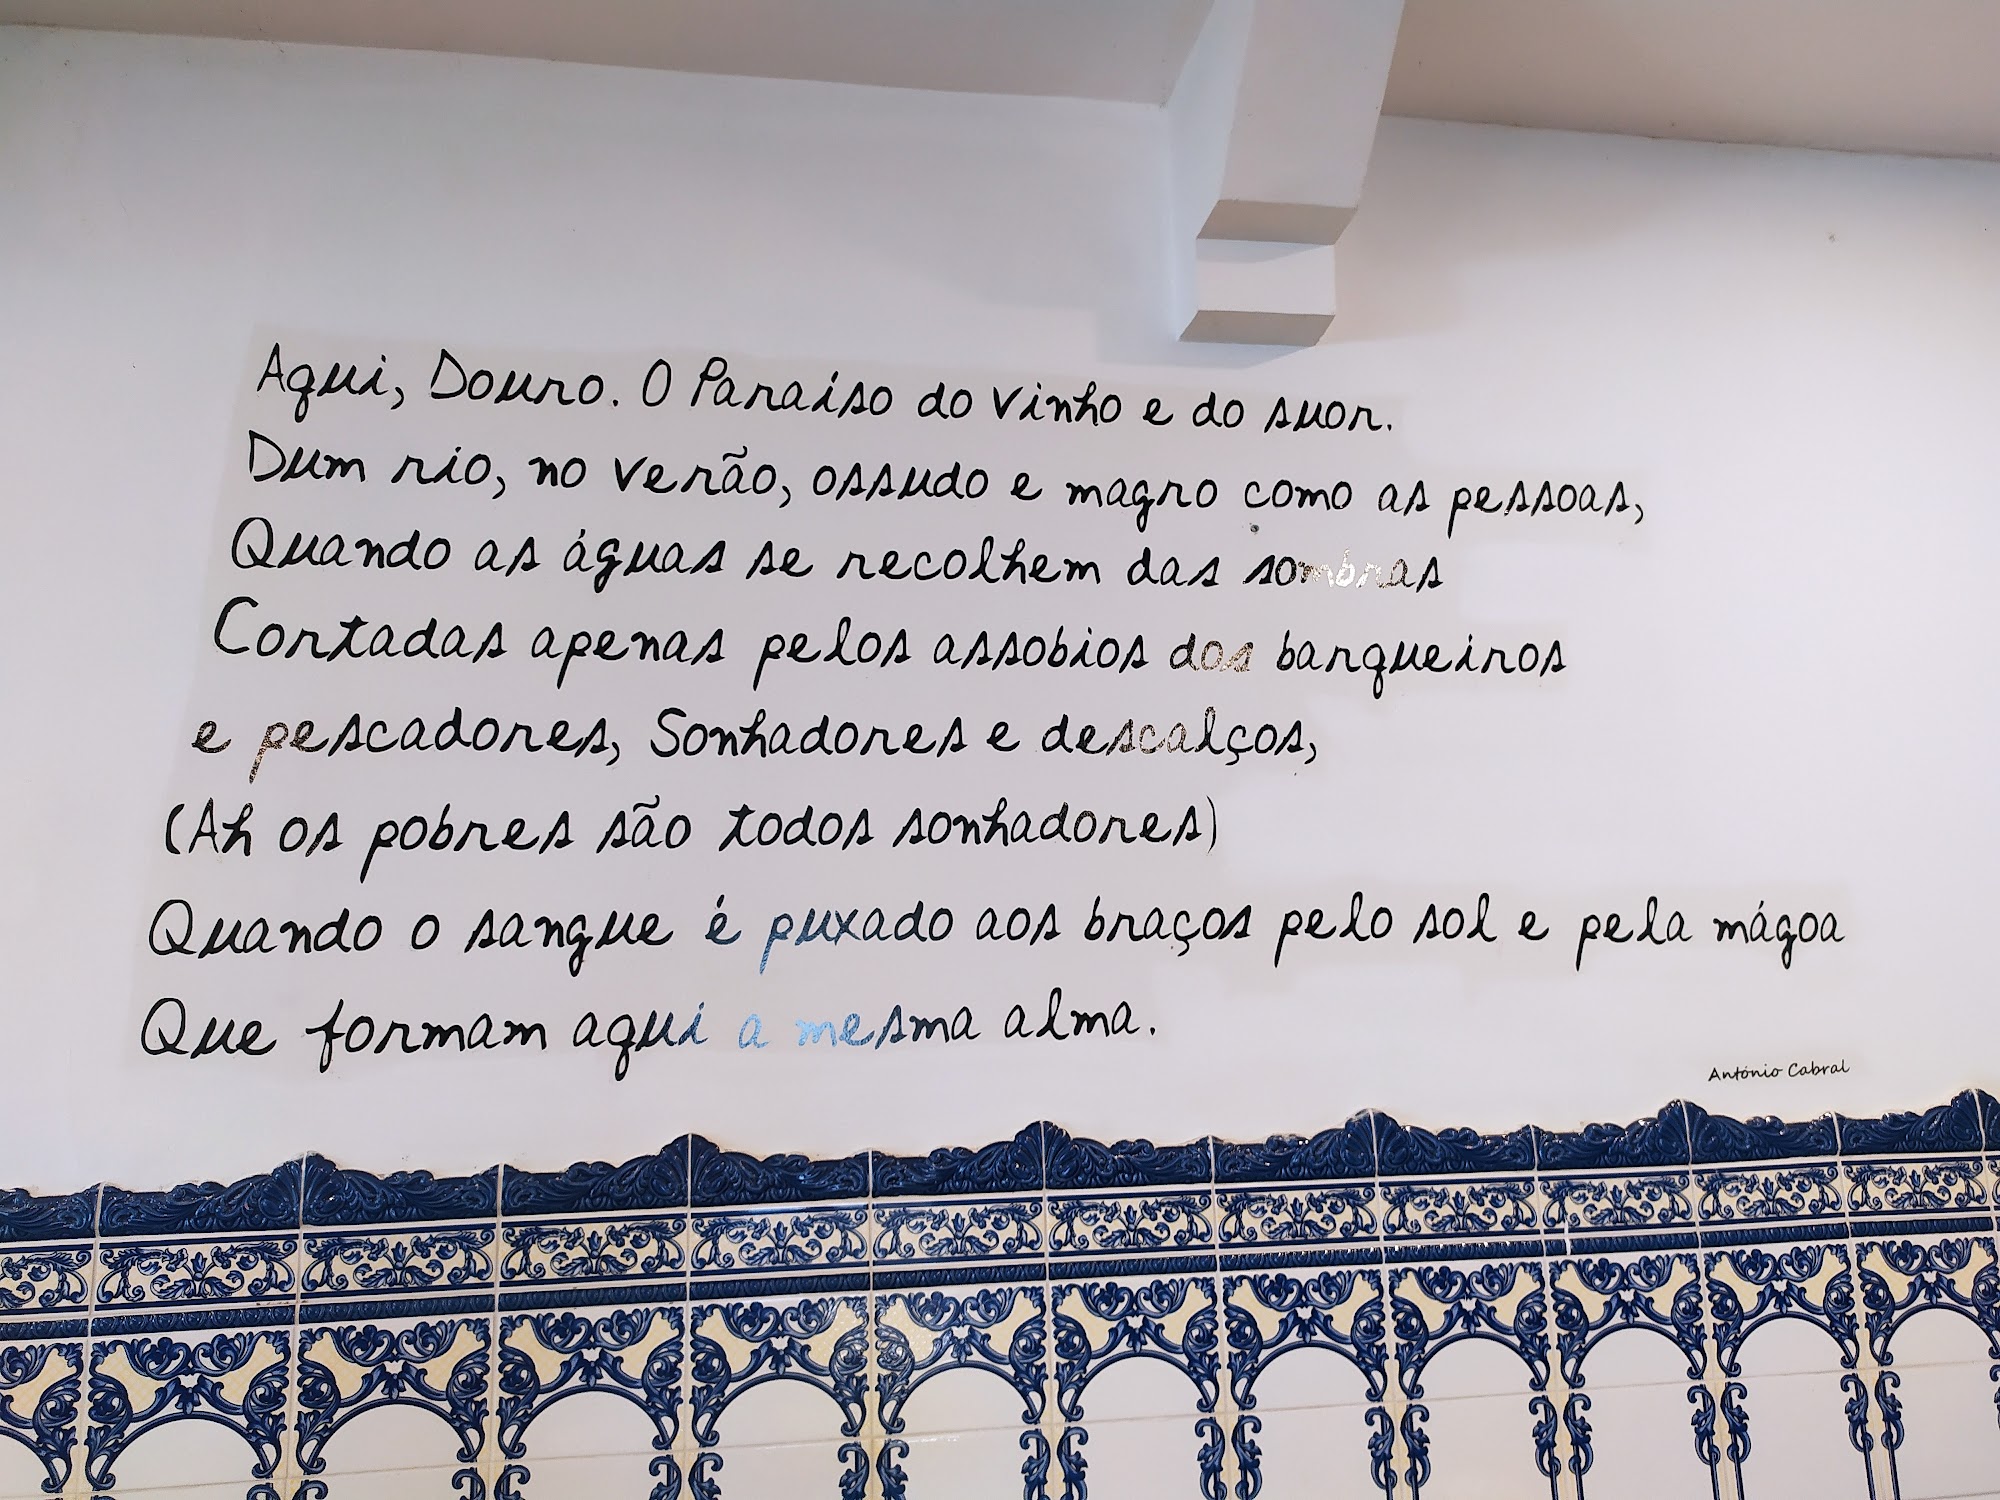 Aqui, Douro. O Paraíso do vinho e do suor.
Dum rio, no verão, ossudo e magro como as pessoas,
Quando as águas se recolhem das sombras
Cortadas apenas pelos assobios dos barqueiros
e pescadores, Sonhadores e descalços,
(Ah os pobres são todos sonhadores)
Quando o sangue é puxado aos braços pelo sol e pela mágoa
Que formam aqui a mesma alma.
António Cabral